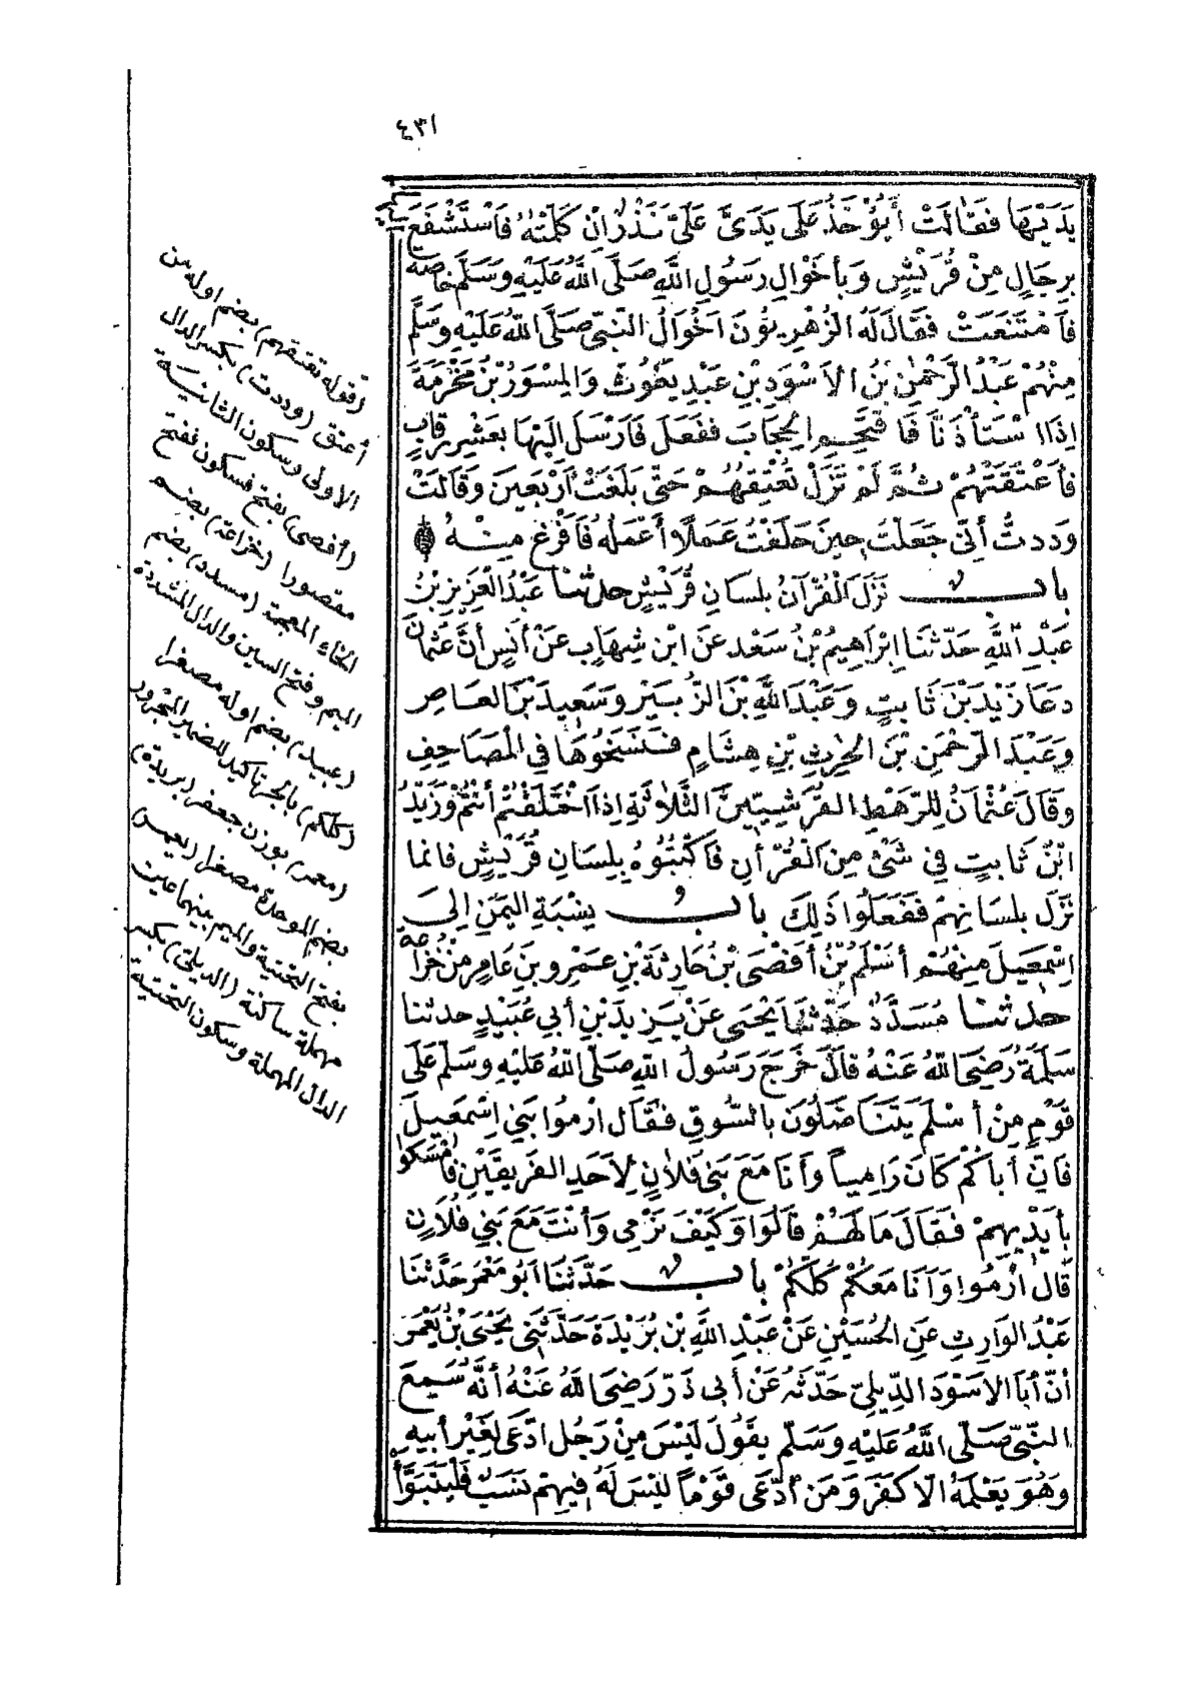 ٤٣١
يَدَيْهَا فَقَالَتْ أَيُؤْخَذُ عَلَى يَدَىَّ عَلَىَّ نَذْرٌ إِنْ كَلَّمْتُهُ فَاسْتَشْفَعَ إليها
بِرِجَالٍ مِنْ قُرَيْشٍ وَبِأَخْوَالِ رَسُولِ اللَّهِ صَلَّى اللَّهُ عَلَيْهِ وَسَلَّمَ خَاصَّةً
فَامْتَنَعَتْ فَقَالَ لَهُ الزُّهْرِيُّونَ أَخْوَالُ النَّبِيِّ صَلَّى اللَّهُ عَلَيْهِ وَسَلَّمَ
مِنْهُمْ عَبْدُ الرَّحْمٰنِ بْنُ الأَسْوَدِ بْنِ عَبْدِ يَغُوثَ وَالْمِسْوَرُ بْنُ مَخْرَمَةَ
إِذَا اسْتَأْذَنَّا فَاقْتَحِمِ الْحِجَابَ فَفَعَلَ فَأَرْسَلَ إِلَيْهَا بِعَشْرِ رِقَابٍ
فَأَعْتَقَتْهُمْ ثُمَّ لَمْ تَزَلْ تُعْتِقُهُمْ حَتَّى بَلَغَتْ أَرْبَعِينَ وَقَالَتْ
وَدِدتُّ أَنِّي جَعَلْتُ حِينَ حَلَفْتُ عَمَلًا أَعْمَلُهُ فَأَفْرُغَ مِنْهُ
باب نَزَلَ الْقُرْآنُ بِلِسَانِ قُرَيْشٍ حدثنا عَبْدُ الْعَزِيزِ بْنُ
عَبْدِ اللَّهِ حَدَّثَنَا إِبْرَاهِيمُ بْنُ سَعْدٍ عَنِ ابْنِ شِهَابٍ عَنْ أَنَسٍ أَنَّ عُثْمَانَ
دَعَا زَيْدَ بْنَ ثَابِتٍ وَعَبْدَ اللَّهِ بْنَ الزُّبَيْرِ وَسَعِيدَ بْنَ العَاصِ
وَعَبْدَ الرَّحْمٰنِ بْنَ الْحٰرِثِ بْنِ هِشَامٍ فَنَسَخُوهَا فِي الْمَصَاحِفِ
وَقَالَ عُثْمَانُ لِلرَّهْطِ القُرَشِيِّينَ الثَّلَاثَةِ إِذَا اخْتَلَفْتُمْ أَنْتُمْ وَزَيْدُ
ابْنُ ثَابِتٍ فِي شَىْءٍ مِنَ الْقُرْآنِ فَاكْتُبُوهُ بِلِسَانِ قُرَيْشٍ فَإِنَّمَا
نَزَلَ بِلِسَانِهِمْ فَفَعَلُوا ذَلِكَ باب نِسْبَةِ اليَمَنِ إِلَى
إِسْمٰعِيلَ مِنْهُمْ أَسْلَمُ بْنُ أَفْصَى بْنِ حَارِثَةَ بْنِ عَمْرِو بْنِ عَامِرٍ مِنْ خُزَاعَةَ
حدثنا مُسَدَّدٌ حَدَّثَنَا يَحْيَى عَنْ يَزِيدَ بْنِ أَبِي عُبَيْدٍ حدثنا
سَلَمَةُ رَضِيَ اللَّهُ عَنْهُ قَالَ خَرَجَ رَسُولُ اللَّهِ صَلَّى اللَّهُ عَلَيْهِ وَسَلَّمَ عَلَى
قَوْمٍ مِنْ أَسْلَمَ يَتَنَاضَلُونَ بِالسُّوقِ فَقَالَ ارْمُوا بَنِي إِسْمٰعِيلَ
فَإِنَّ أَبَاكُمْ كَانَ رَامِيًا وَأَنَا مَعَ بَنِي فُلَانٍ لِأَحَدِ الفَرِيقَيْنِ فَأَمْسَكُوا
بِأَيْدِيهِمْ فَقَالَ مَا لَهُمْ قَالُوا وَكَيْفَ نَرْمِي وَأَنْتَ مَعَ بَنِي فُلَانٍ
قَالَ ارْمُوا وَأَنَا مَعَكُمْ كُلِّكُمْ باب حَدَّثَنَا أَبُو مَعْمَرٍ حَدَّثَنَا
عَبْدُ الوَارِثِ عَنِ الْحُسَيْنِ عَنْ عَبْدِ اللَّهِ بْنِ بُرَيْدَةَ حَدَّثَنِي يَحْيَى بْنُ يَعْمَرَ
أَنَّ أَبَا الأَسْوَدِ الدِّيلِيَّ حَدَّثَهُ عَنْ أَبِي ذَرٍّ رَضِيَ اللَّهُ عَنْهُ أَنَّهُ سَمِعَ
النَّبِيَّ صَلَّى اللَّهُ عَلَيْهِ وَسَلَّمَ يَقُولُ لَيْسَ مِنْ رَجُلٍ ادَّعَى لِغَيْرِ أَبِيهِ
وَهُوَ يَعْلَمُهُ إِلَّا كَفَرَ وَمَنِ ادَّعَى قَوْمًا لَيْسَ لَهُ فِيهِمْ نَسَبٌ فَلْيَتَبَوَّأْ
(قوله تعتقهم) بضم اوله من
أعتق (وددت) بكسر الدال
الاولى وسكون الثانية
(أفصى) بفتح فسكون ففتح
مقصورا (خزاعة) بضم
الخاء المعجمة (مسدد) بضم
الميم وفتح السين والدال المشددة
(عبيد) بضم اوله مصغرا
(كلكم) بالجر تاكيد للضمير المجرور
(معمر) بوزن جعفر (بريدة)
بضم الموحدة مصغرا (يعمر)
بفتح التحتية والميم بينهما عين
مهملة ساكنة (الديلي) بكسر
الدال المهملة وسكون التحتية